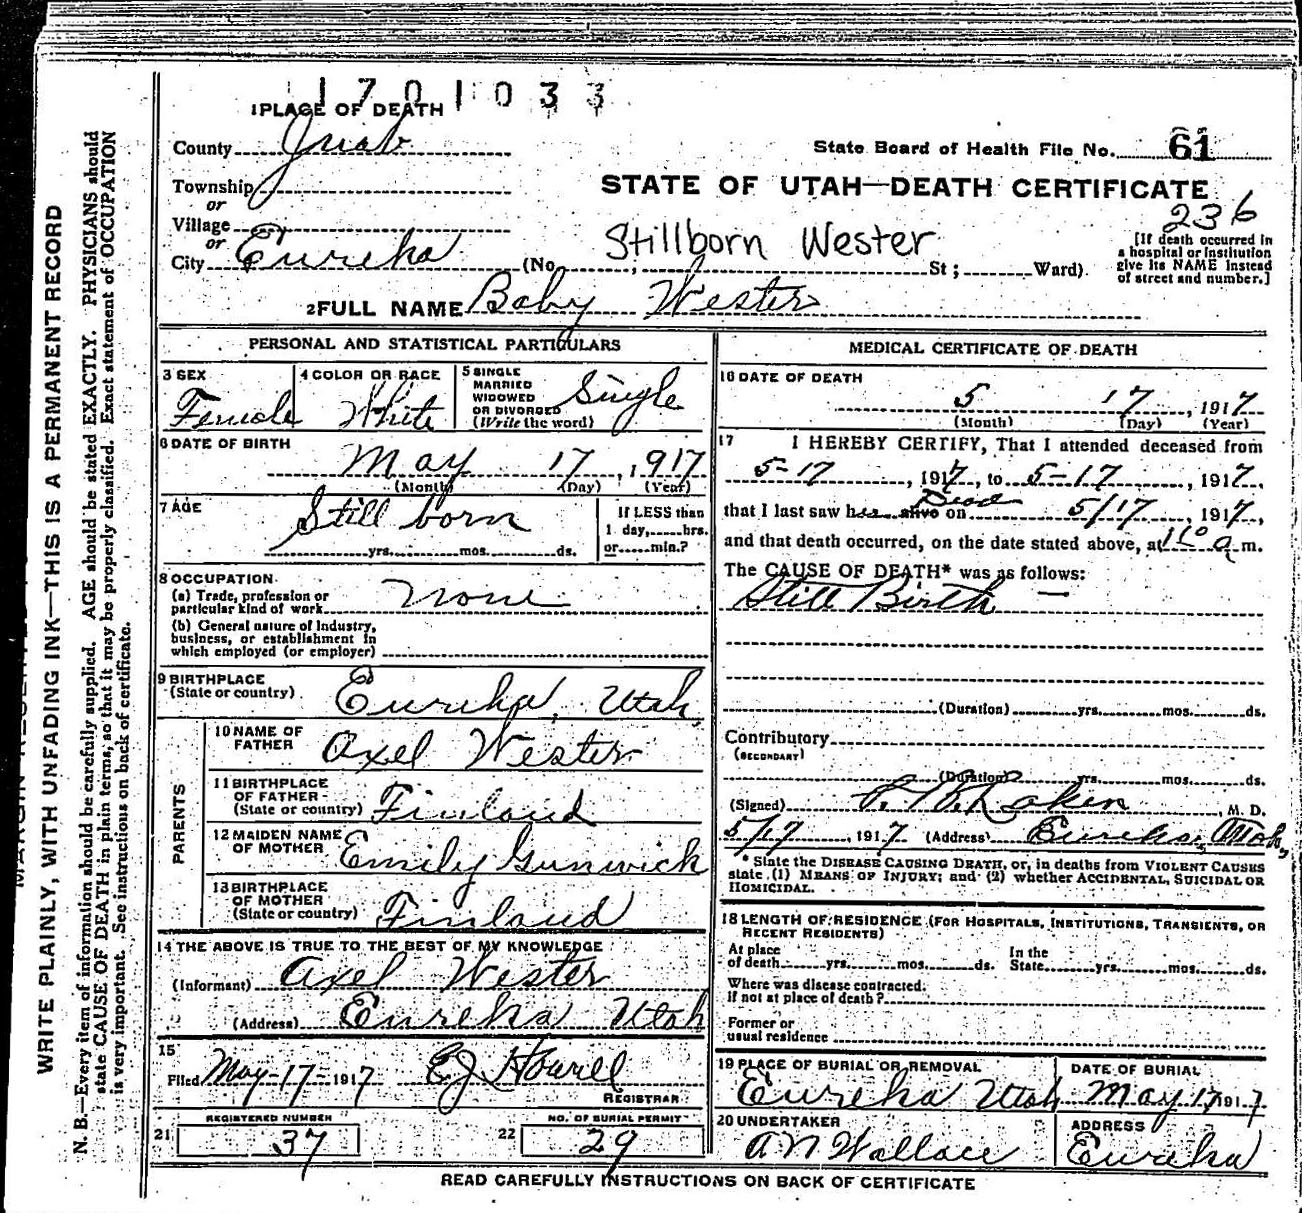 1701033
1 PLACE OF DEATH
County Juab
State Board of Health File No. 61
Township
or
STATE OF UTAH—DEATH CERTIFICATE
236
Village
or
City Eureka
Stillborn Wester
(No. , St; Ward).
[If death occurred in
a hospital or institution
give its NAME instead
of street and number.]
2 FULL NAME Baby Wester
PERSONAL AND STATISTICAL PARTICULARS
3 SEX
Female
4 COLOR OR RACE
White
5 SINGLE
MARRIED
WIDOWED
OR DIVORCED
(Write the word)
Single
6 DATE OF BIRTH
May 17, 1917
(Month) (Day) (Year)
7 AGE
Still born
yrs. mos. ds.
If LESS than
1 day, hrs.
or min.?
8 OCCUPATION
(a) Trade, profession or
particular kind of work None
(b) General nature of Industry,
business, or establishment in
which employed (or employer)
9 BIRTHPLACE
(State or country) Eureka, Utah,
PARENTS
10 NAME OF
FATHER Axel Wester
11 BIRTHPLACE
OF FATHER
(State or country) Finland
12 MAIDEN NAME
OF MOTHER Emily Gunwick
13 BIRTHPLACE
OF MOTHER
(State or country) Finland
14 THE ABOVE IS TRUE TO THE BEST OF MY KNOWLEDGE
(Informant) Axel Wester
(Address) Eureka Utah
15
Filed May-17-1917 EJ Howell
REGISTRAR
REGISTERED NUMBER
21 37
NO. OF BURIAL PERMIT
22 29
MEDICAL CERTIFICATE OF DEATH
16 DATE OF DEATH
5 17, 1917
(Month) (Day) (Year)
17 I HEREBY CERTIFY, That I attended deceased from
5-17, 1917, to 5-17, 1917,
Dead
that I last saw her alive on 5/17, 1917,
and that death occurred, on the date stated above, at 11° a m.
The CAUSE OF DEATH* was as follows:
Still Birth —
(Duration) yrs. mos. ds.
Contributory
(SECONDARY)
(Duration) yrs. mos. ds.
(Signed) , M. D.
5/17, 1917 (Address) Eureka, Utah,
* State the DISEASE CAUSING DEATH, or, in deaths from VIOLENT CAUSES
state (1) MEANS OF INJURY; and (2) whether ACCIDENTAL, SUICIDAL OR
HOMICIDAL.
18 LENGTH OF RESIDENCE (FOR HOSPITALS, INSTITUTIONS, TRANSIENTS, OR
RECENT RESIDENTS)
At place
of death yrs. mos. ds.
In the
State yrs. mos. ds.
Where was disease contracted,
if not at place of death?
Former or
usual residence
19 PLACE OF BURIAL OR REMOVAL
Eureka Utah
DATE OF BURIAL
May 17 1917
20 UNDERTAKER
A N Wallace
ADDRESS
Eureka
READ CAREFULLY INSTRUCTIONS ON BACK OF CERTIFICATE
WRITE PLAINLY, WITH UNFADING INK—THIS IS A PERMANENT RECORD
N. B.—Every item of information should be carefully supplied. AGE should be stated EXACTLY. PHYSICIANS should
state CAUSE OF DEATH in plain terms, so that it may be properly classified. Exact statement of OCCUPATION
is very important. See instructions on back of certificate.